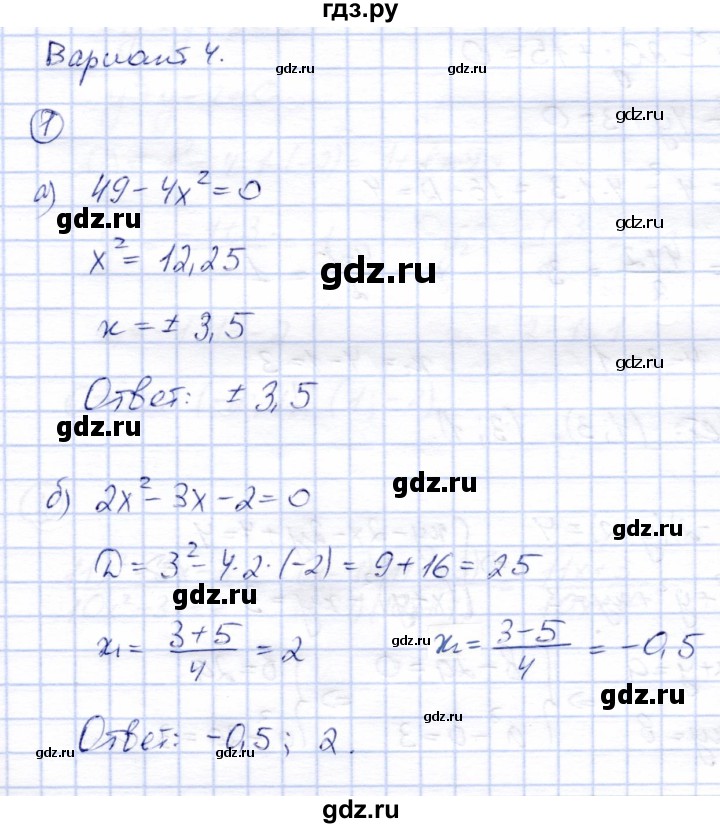 гдз.ру
Вариант 4.
gdz.ru
gdz.ru
1
а) 49 - 4x² = 0
gdz.ru
gdz.ru
x² = 12,25
gdz.ru
x = ± 3,5
gdz.ru
Ответ: ± 3,5
gdz.ru
б) 2x² - 3x - 2 = 0
gdz.ru
gdz.ru
D = 3² - 4·2·(-2) = 9 + 16 = 25
gdz.ru
x₁ = (3+5)/4 = 2 gdz.ru x₂ = (3-5)/4 = -0,5
gdz.ru
gdz.ru
Ответ: -0,5; 2.
gdz.ru
gdz.ru
gdz.ru